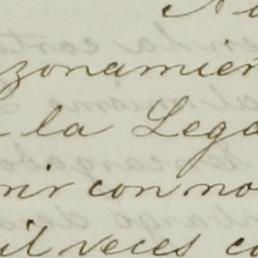 zonamien
a la Lega
nir con no
il veces co